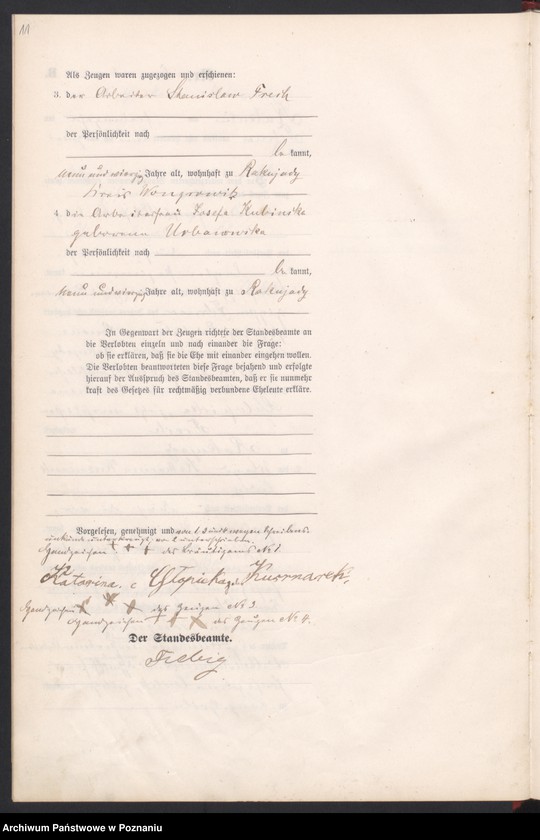 111
Als Zeugen waren zugezogen und erschienen:
3. der Arbeiter Stanislaw
der Persönlichkeit nach
be kannt,
neun und vierzig Jahre alt, wohnhaft zu Rakujady
Kreis Wongrowitz
4. die Arbeiterfrau Josefa Kubinska
geborene Urbanowska
der Persönlichkeit nach
be kannt,
neun und vierzig Jahre alt, wohnhaft zu Rakujady
In Gegenwart der Zeugen richtete der Standesbeamte an
die Verlobten einzeln und nach einander die Frage:
ob sie erklären, daß sie die Ehe mit einander eingehen wollen.
Die Verlobten beantworteten diese Frage bejahend und erfolgte
hierauf der Ausspruch des Standesbeamten, daß er sie nunmehr
kraft des Gesetzes für rechtmäßig verbundene Eheleute erkläre.
Vorgelesen, genehmigt und von 1, 3 und 4 wegen Schreibens-
unkunde unterkreuzt, von 2 unterschrieben.
Handzeichen + + + des Bräutigams No 1.
Katarina Kaczmarek
Handzeichen x x x des Zeugen No 3
Handzeichen + + x des Zeugen No 4.
Der Standesbeamte.
Fiebig
Archiwum Państwowe w Poznaniu